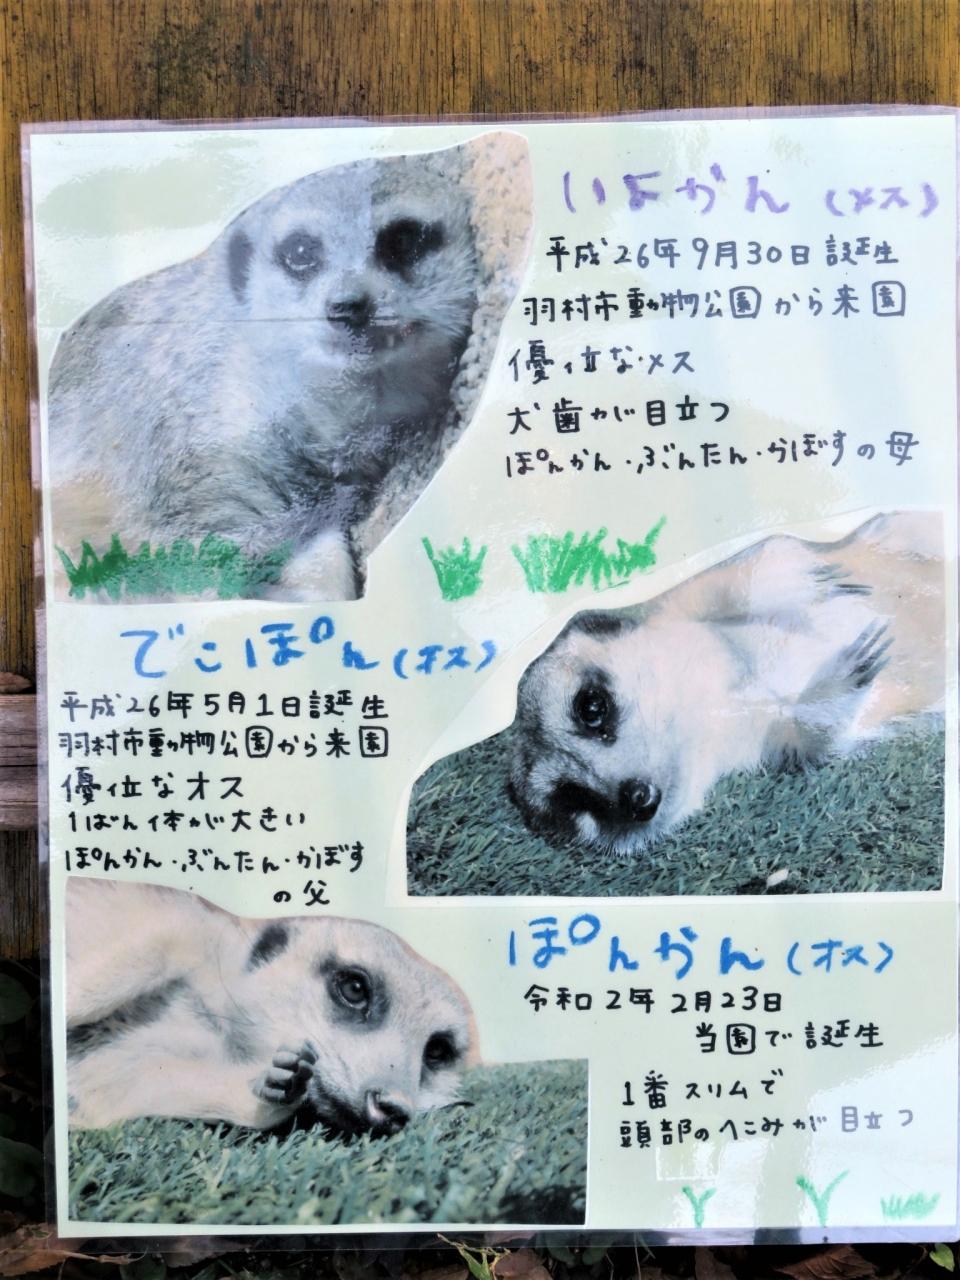 いよかん(メス)
平成26年9月30日誕生
羽村市動物公園から来園
優位なメス
犬歯が目立つ
ぽんかん・ぶんたん・かぼすの母
でこぽん(オス)
平成26年5月1日誕生
羽村市動物公園から来園
優位なオス
1ばん体が大きい
ぽんかん・ぶんたん・かぼす
の父
ぽんかん(オス)
令和2年2月23日
当園で誕生
1番スリムで
頭部のへこみが目立つ